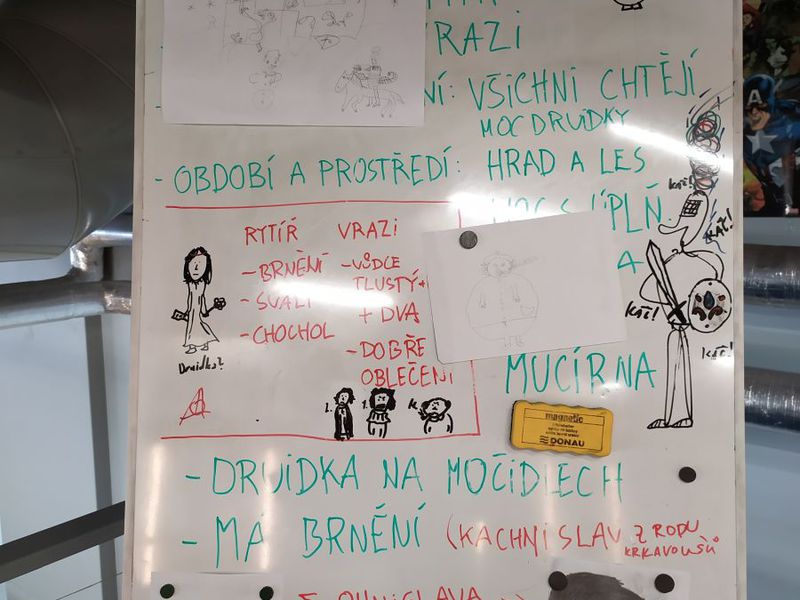 VRAZI
NÍ: VŠICHNI CHTĚJÍ
MOC DRUIDKY
- OBDOBÍ A PROSTŘEDÍ: HRAD A LES
ÚPLŇ
RYTÍŘ
- BRNĚNÍ
- SVALY
- CHOCHOL
VRAZI
- VŮDCE
TLUSTÝ +
+ DVA
- DOBŘE
OBLEČENÍ
Druidka?
1.
MUČÍRNA
KÁČ!
KÁČ!
KÁČ!
KÁČ!
magnetic
DONAU
- DRUIDKA NA MOČIDLECH
- MÁ BRNĚNÍ (KACHNISLAV Z RODU
KRKAVOUŠŮ